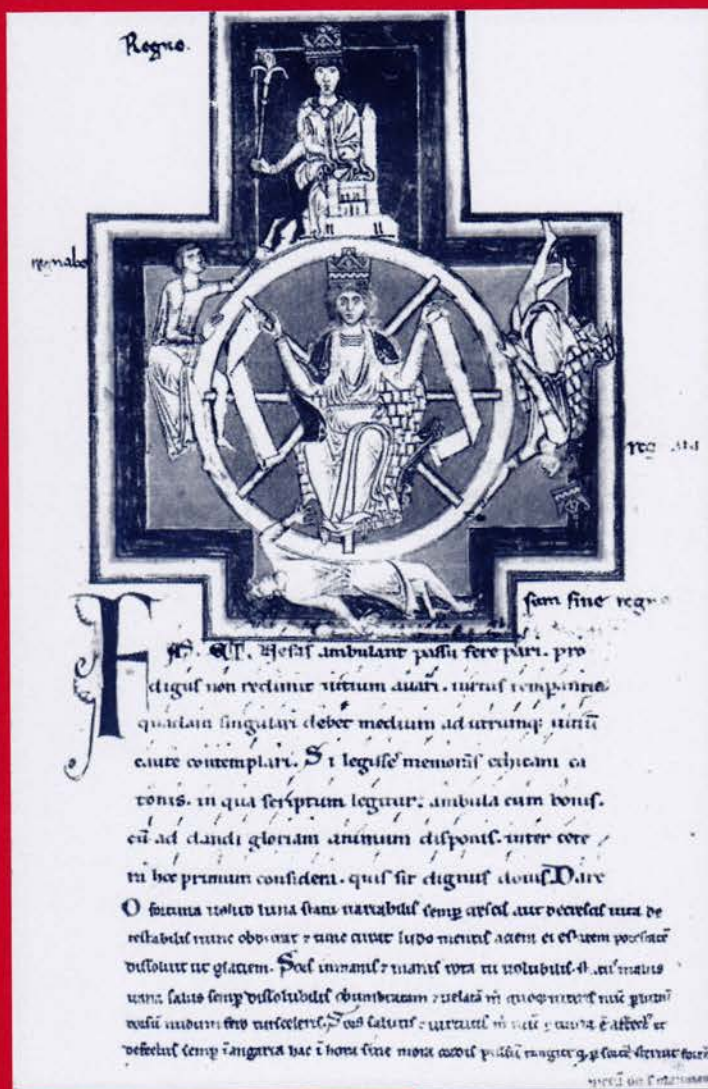 Regno.
regnabo
sum sine regno
FAS. ET. Nefas ambulant passu fere pari. pro
digus non redimit uitium auari. uirtus temperantia
quadam singulari debet medium ad utrumq; uitiū
caute contemplari. Si legisse memoras ethicam ca
tonis. in qua scriptum legitur: ambula cum bonis.
cū ad dandi gloriam animum disponis. inter cete
ra hoc primum considera. quis sit dignus donis. Dare
O fortuna uelud luna statu uariabilis semp crescis aut decrescis uita de
testabilis nunc obdurat & tunc curat ludo mentis aciem egestatem potestatē
dissoluit ut glaciem. Sors immanis & inanis rota tu uolubilis status malus
uana salus semp dissolubilis obumbratam & uelatam m quoq niteris nūc
dorsū nudum fero tui sceleris. Sors salutis & uirtutis m nūc
defectus semp ī angaria hac ī hora sine mora cordis pulsū tangite